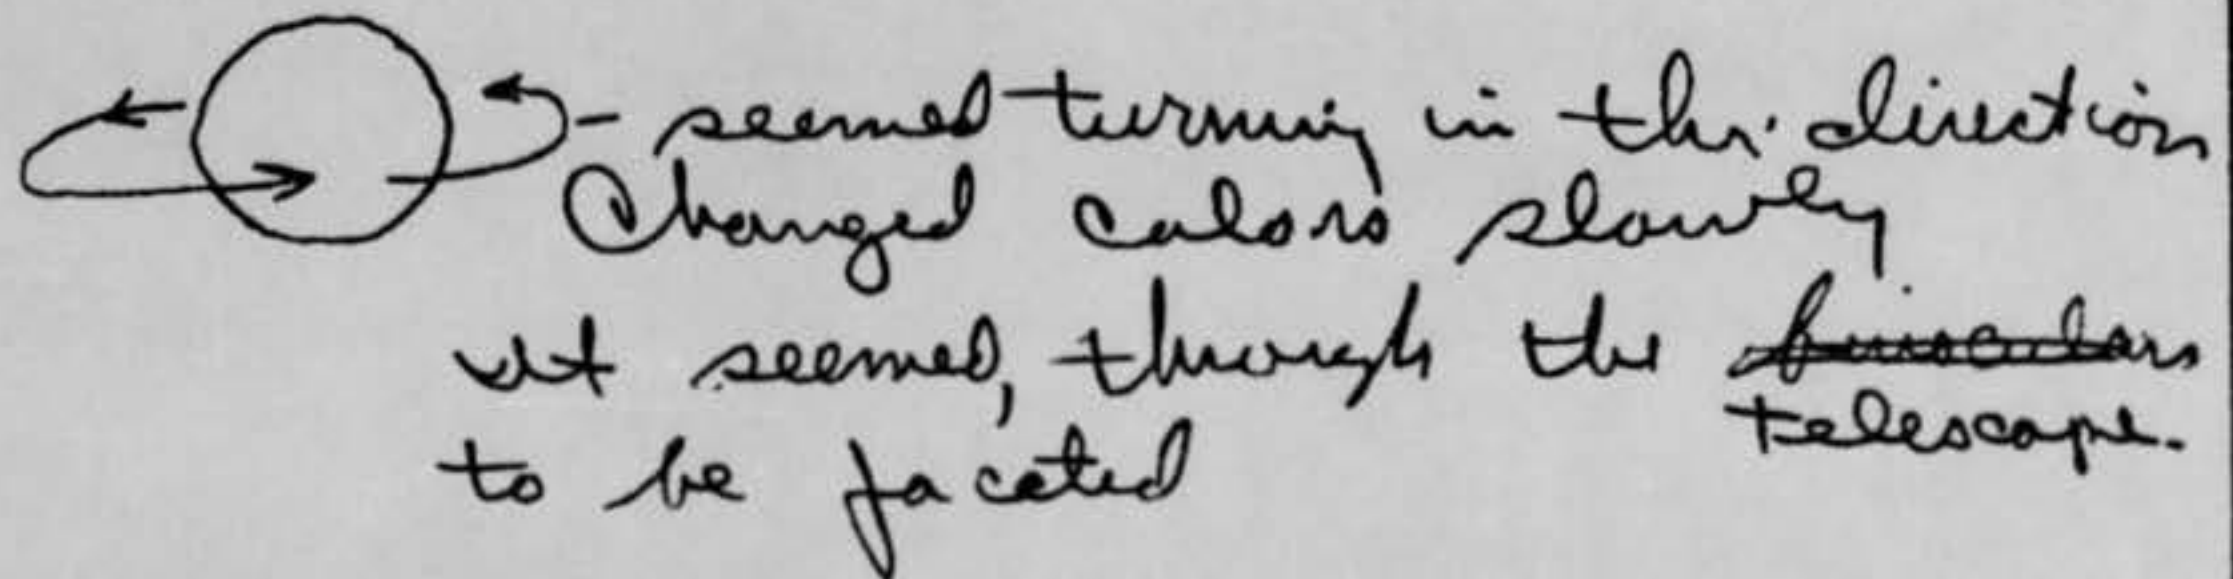 - seemed turning in this direction
Changed colors slowly
it seemed, through the binoculars
telescope.
to be faceted